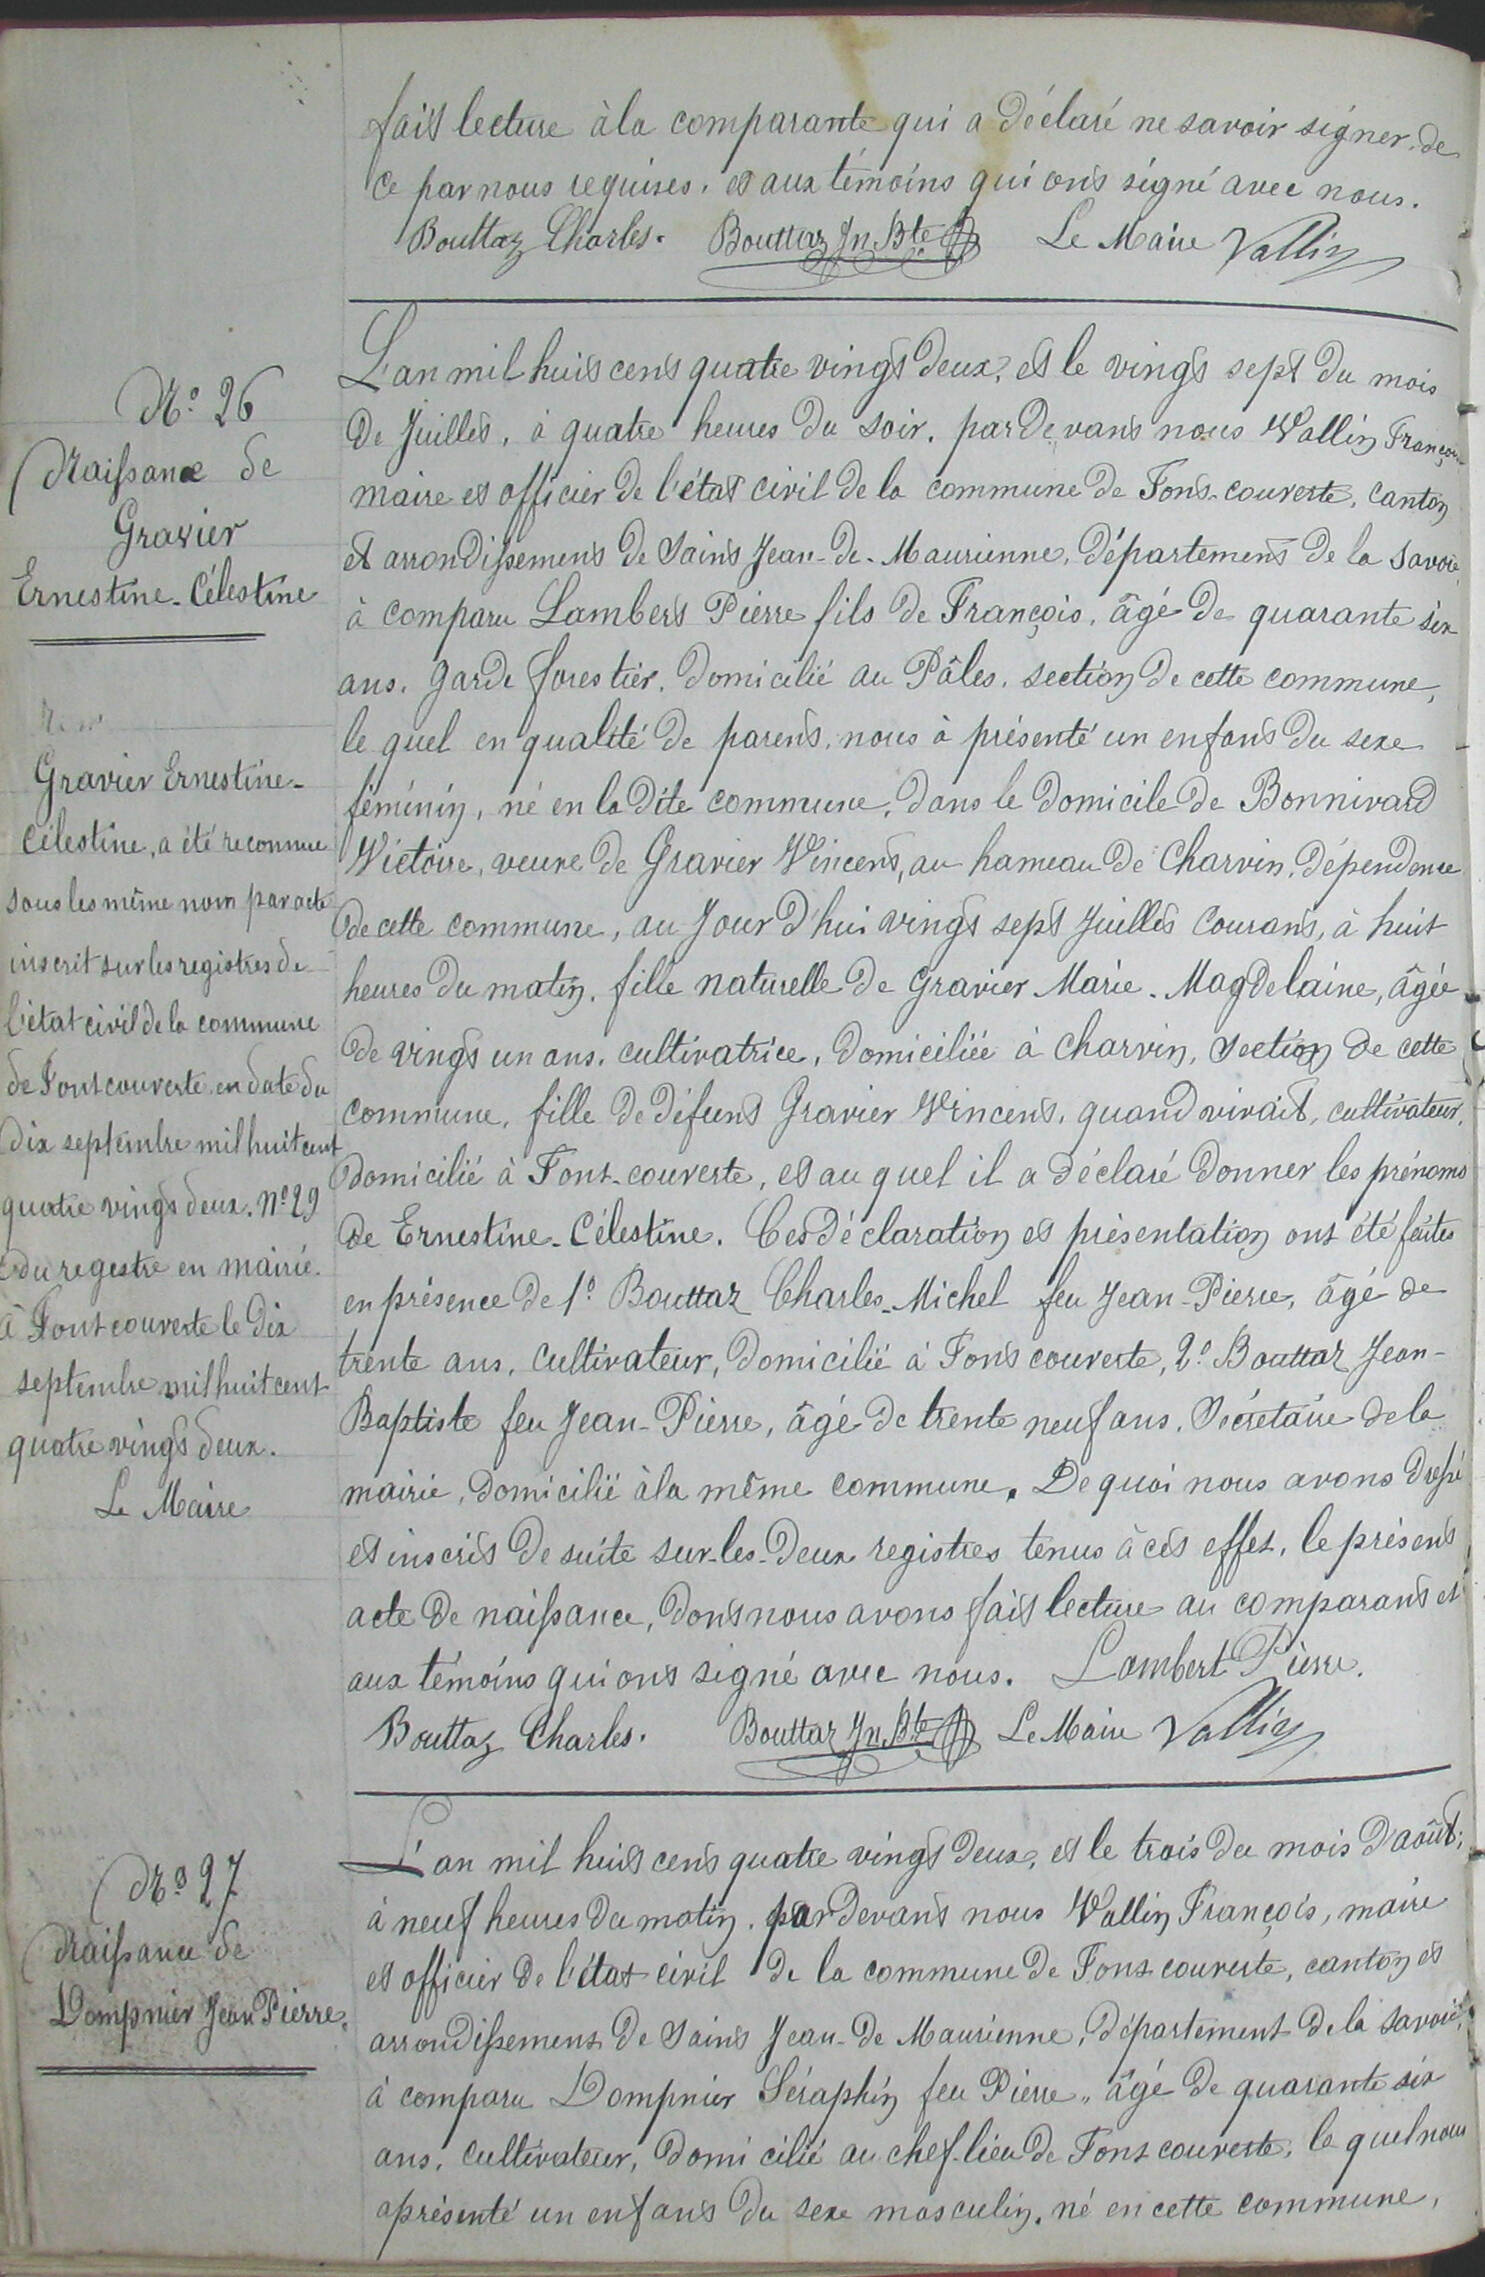 fait lecture à la comparante qui a déclaré ne savoir signer, de
ce par nous requises. et aux témoins qui ont signé avec nous.
Bouttaz Charles. Bouttaz Jn Bte Le Maire Vallin
N.° 26
Naissance de
Gravier
Ernestine-Célestine
L'an mil huit cent quatre vingt deux, et le vingt sept du mois
de Juillet, à quatre heures du soir. par devant nous Vallin François
maire et officier de l'état civil de la commune de Font-couverte, canton
et arrondissement de Saint Jean-de-Maurienne, département de la Savoie,
à comparu Lambert Pierre fils de François, âgé de quarante six
ans. garde forestier. domicilié au Pâles. section de cette commune,
le quel en qualité de parent, nous à présenté un enfant du sexe
féminin, né en la dite commune, dans le domicile de Bonnivard
Victoire, veuve de Gravier Vincent, au hameau de Charvin, dépendence
de cette commune, au Jour d'hui vingt sept Juillet courant, à huit
heures du matin. fille naturelle de Gravier Marie-Magdelaine, âgée
de vingt un ans. cultivatrice, domiciliée à Charvin, section de cette
commune, fille de défunt Gravier Vincent, quand vivait, cultivateur,
domicilié à Font-couverte, et au quel il a déclaré donner les prénoms
de Ernestine-Célestine. Ces déclaration et présentation ont été faites
en présence de 1° Bouttaz Charles-Michel feu Jean-Pierre, âgé de
trente ans, cultivateur, domicilié à Font couverte, 2° Bouttaz Jean-
Baptiste feu Jean-Pierre, âgé de trente neuf ans, Sécretaire de la
mairie, domicilié à la même commune. De quoi nous avons dressé
et inscrit de suite sur-les-deux registres tenus à cet effet, le présent
acte de naissance, dont nous avons fait lecture au comparant et
aux témoins qui ont signé avec nous. Lambert Pierre.
Bouttaz Charles. Bouttaz Jn Bte Le Maire Vallin
Gravier Ernestine-
Célestine, a été reconnue
sous les même nom par acte
inscrit sur les registres de
l'état civil de la commune
de Font couverte en date du
dix septembre mil huit cent
quatre vingt deux. N° 29
du regestre en mairie.
à Font couverte le dix
septembre mil huit cent
quatre vingt deux.
Le Maire
N.° 27
Naissance de
Dompnier Jean Pierre.
L'an mil huit cent quatre vingt deux, et le trois du mois d'août,
à neuf heures du matin, par devant nous Vallin François, maire
et officier de l'état civil de la commune de Font couverte, canton et
arrondissement de Saint Jean-de Maurienne, département de la Savoie,
à comparu Dompnier Séraphin feu Pierre, âgé de quarante six
ans, cultivateur, domicilié au chef-lieu de Font couverte, le quel nous
a présenté un enfant du sexe masculin, né en cette commune,